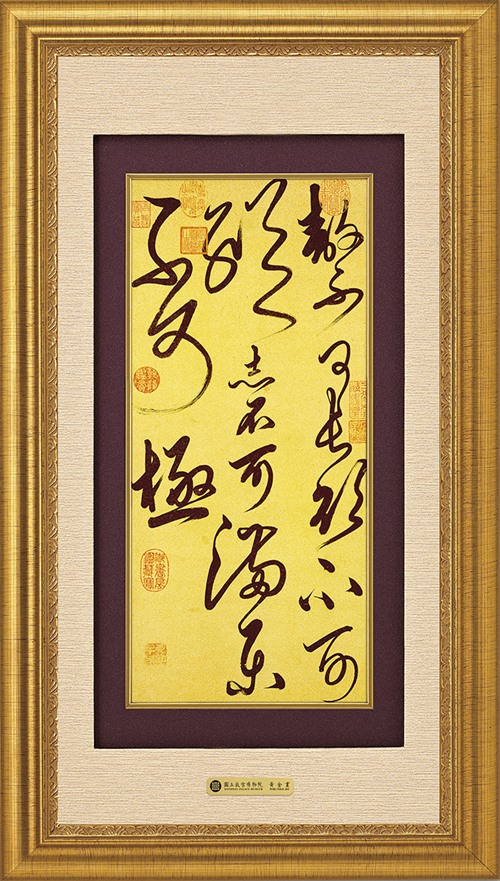 敖不可長欲不可
縱志不可滿樂
不可極
國立故宮博物院 黃金畫
NATIONAL PALACE MUSEUM